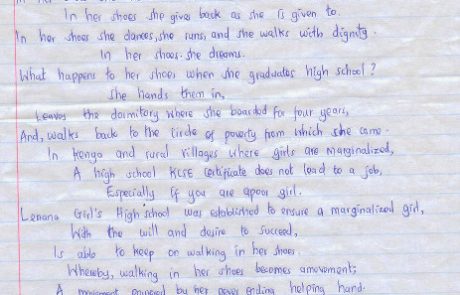 In her shoes she gives back as she is given to.
In her shoes she dances, she runs, and she walks with dignity.
In her shoes she dreams.
What happens to her shoes when she graduates high school?
She hands them in,
Leaves the dormitory where she boarded for four years,
And, walks back to the circle of poverty from which she came.
In Kenya and rural villages where girls are marginalized,
A high school KCSE Certificate does not lead to a job,
Especially if you are a poor girl.
Lenana Girl's High school was established to ensure a marginalized girl,
With the will and desire to succeed,
Is able to keep on walking in her shoes.
Whereby, walking in her shoes becomes a movement;
A movement powered by her never ending helping hand.